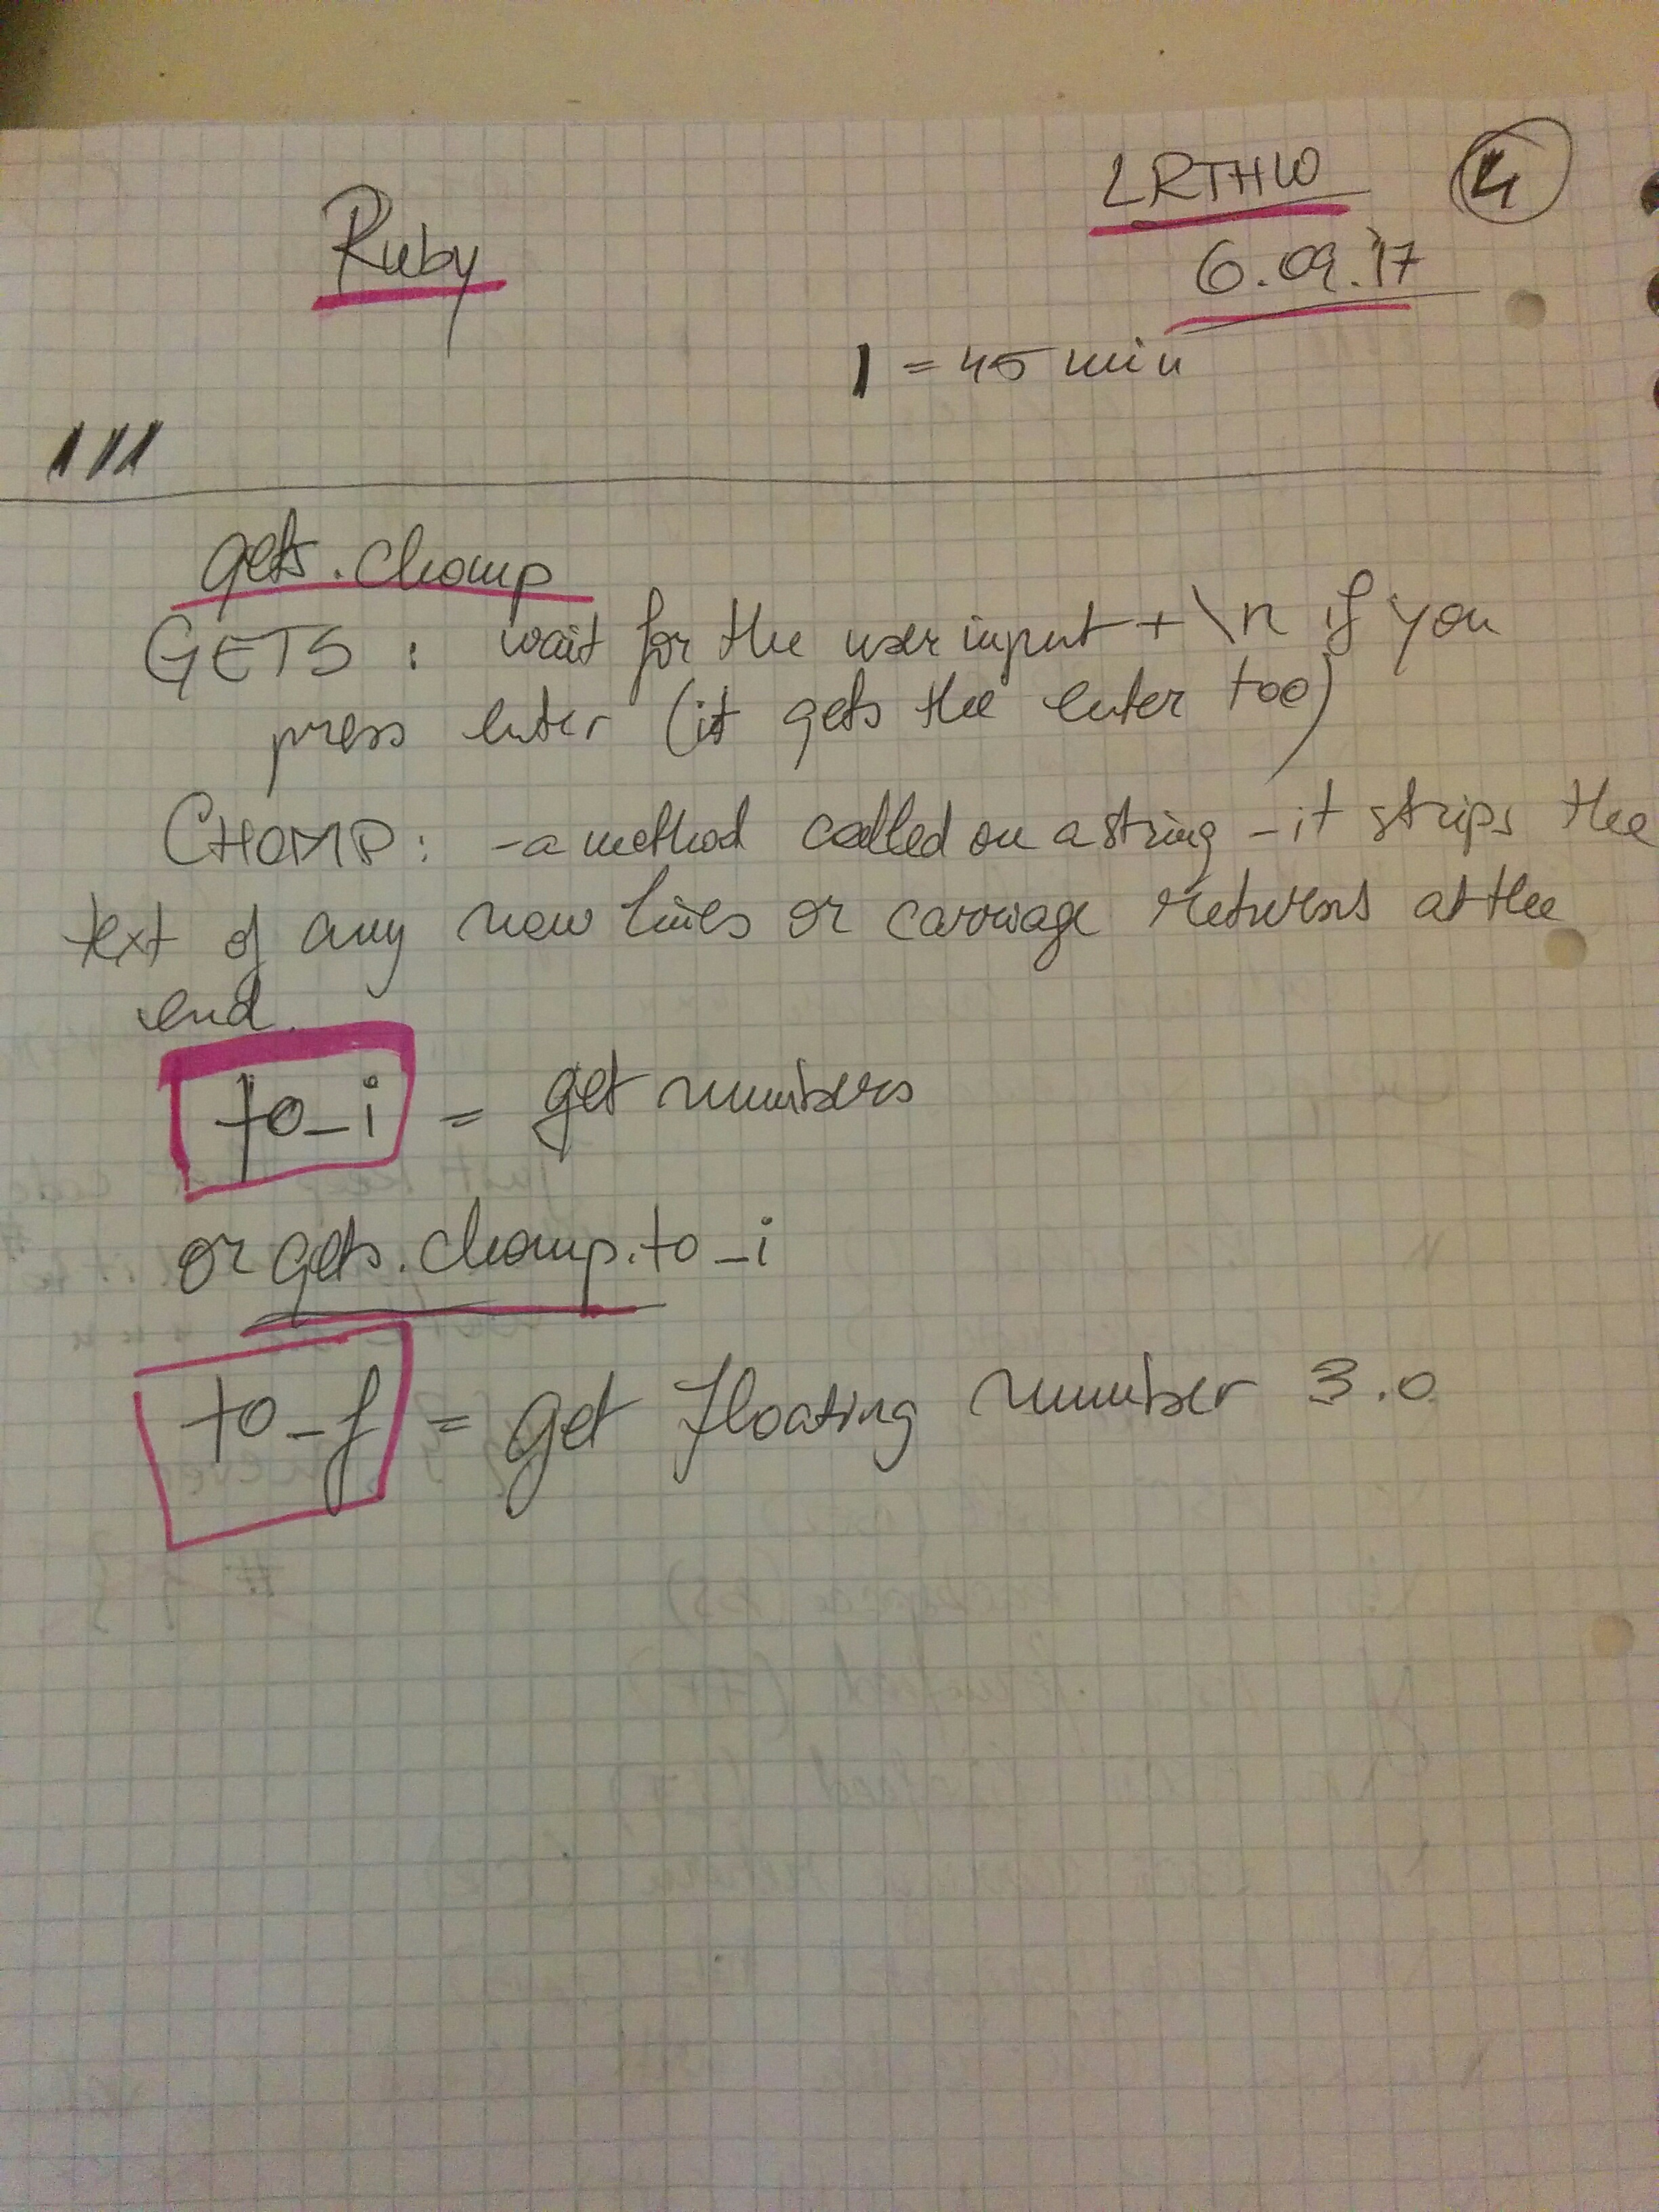 Ruby
LRTHW 4
6.09.'17
1 = 45 min
111
gets.chomp
GETS : wait for the user input + \n if you
press enter (it gets the enter too)
CHOMP: - a method called on a string - it strips the
text of any new lines or carriage returns at the
end.
to_i = get numbers
or gets.chomp.to_i
to_f = get floating number 3.0